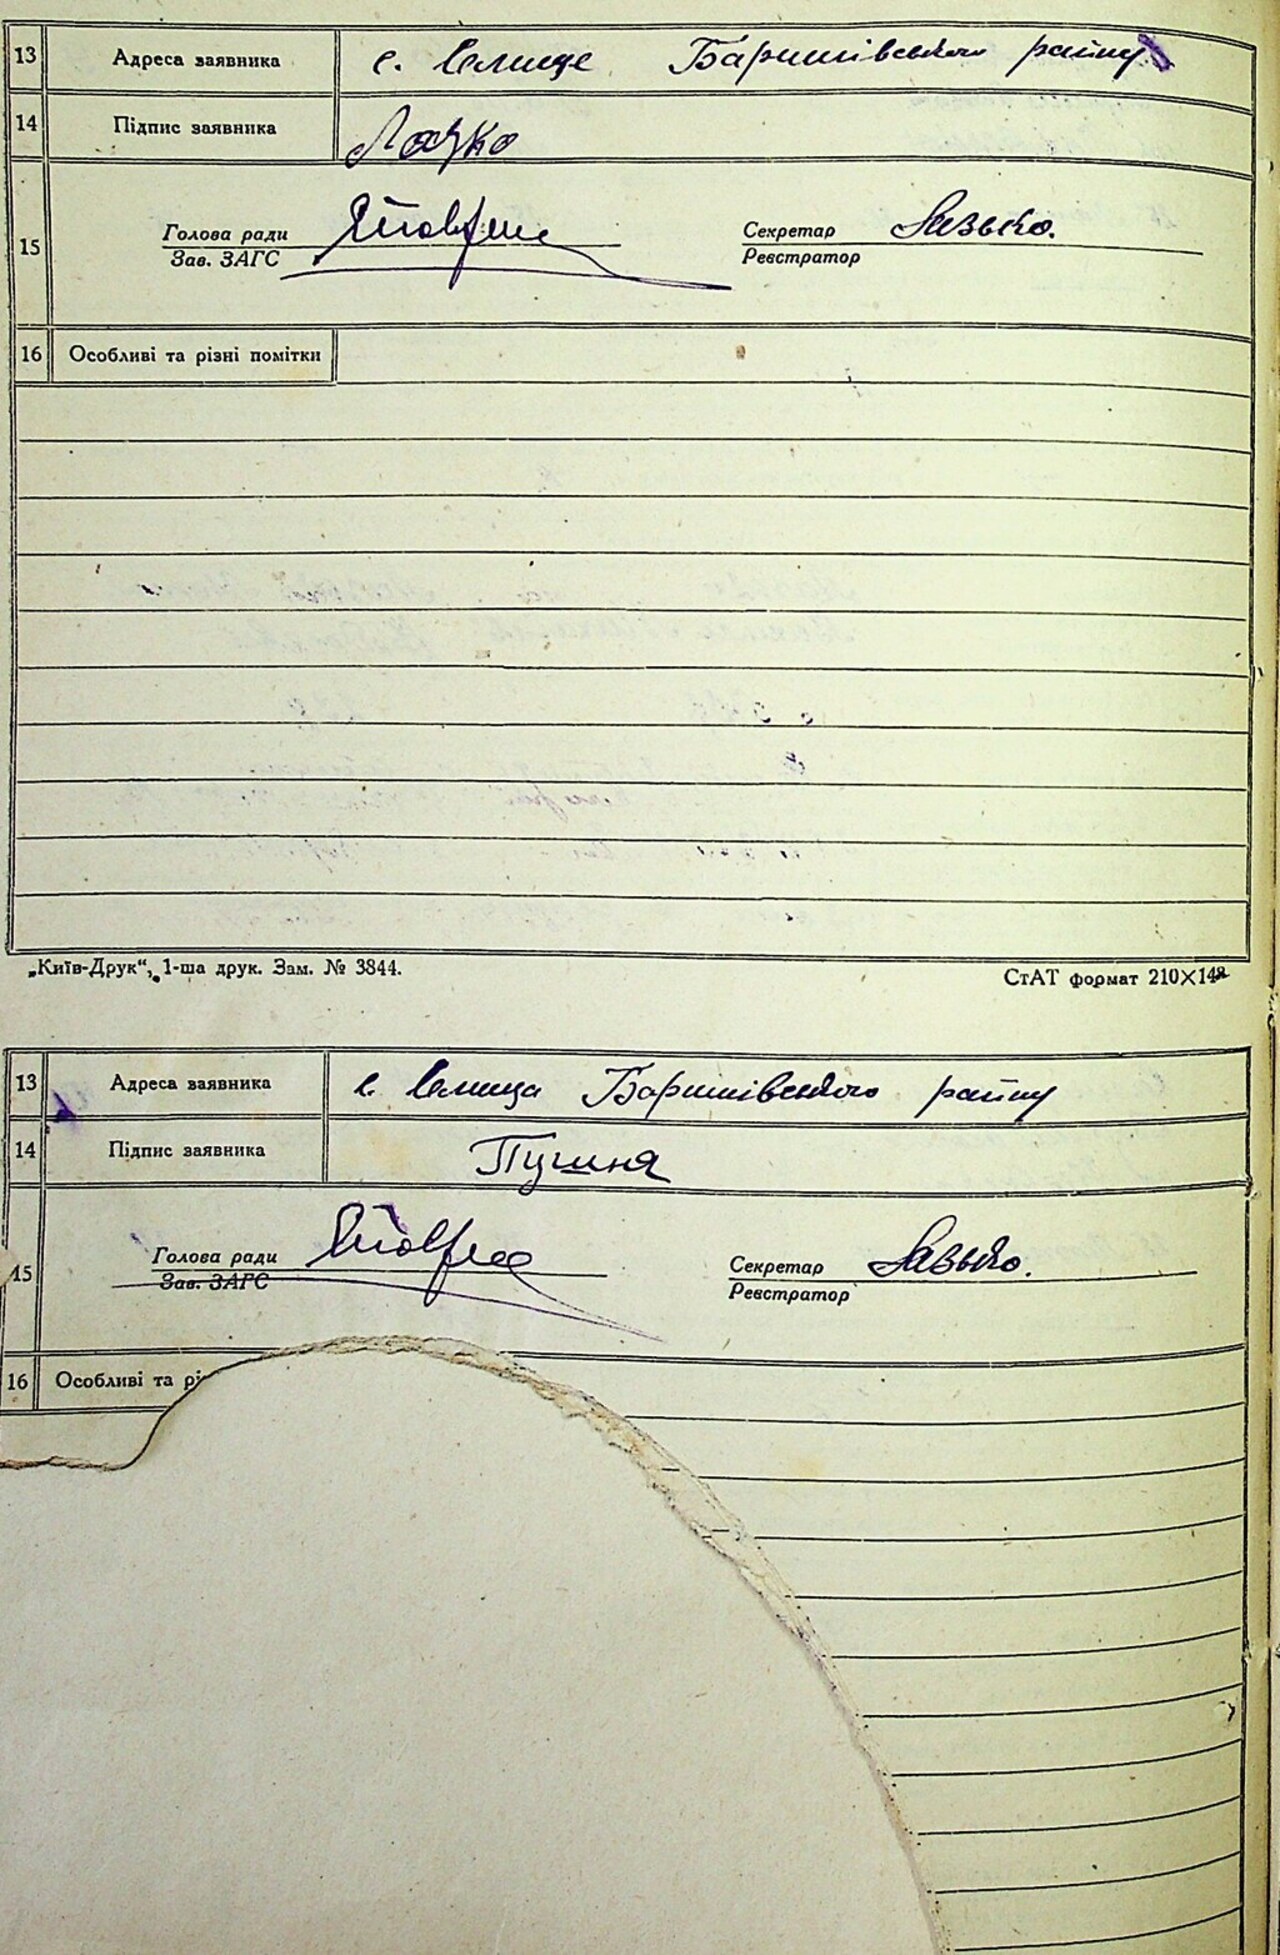 13 Адреса заявника с. Селище Баришівського району
14 Підпис заявника Лочко
Голова ради Секретар Лазько.
15 Зав. ЗАГС Реєстратор
16 Особливі та різні помітки
„Київ-Друк“, 1-ша друк. Зам. № 3844. СтАТ формат 210×148
13 Адреса заявника с. Селища Баришівського району
14 Підпис заявника
Голова ради Секретар Лазько.
15 Зав. ЗАГС Реєстратор
16 Особливі та рі